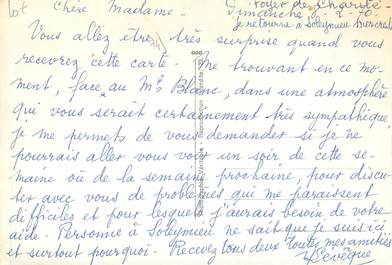 Chère Madame - Foyer de Charité
Dimanche
je retourne à Soleymieu mercredi
Vous allez être très surprise quand vous
recevrez cette carte. Me trouvant en ce mo-
ment, face au Mt Blanc, dans une atmosphère
qui vous serait certainement très sympathique
je me permets de vous demander si je ne
pourrais aller vous voir un soir de cette se-
maine où de la semaine prochaine, pour discu-
ter avec vous de problèmes qui me paraissent
difficiles et pour lesquels j'aurais besoin de votre
aide. Personne à Soleymieu ne sait que je suis ici
et surtout pourquoi. Recevez tous deux toutes mes amitiés
Levêque